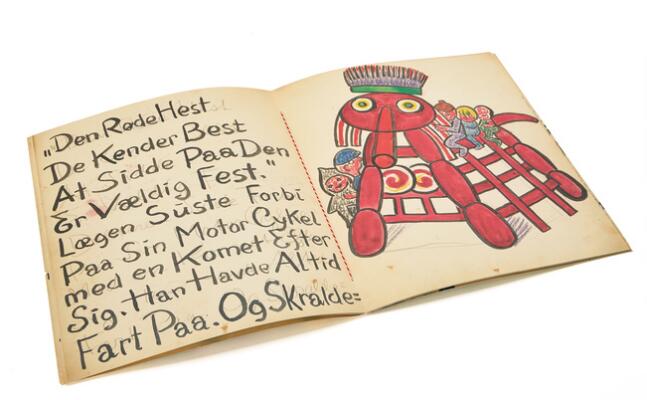 "Den Røde Hest
De Kender Best
At Sidde Paa Den
Er Vældig Fest."
Lægen Suste Forbi
Paa Sin Motor Cykel
med en Komet Efter
Sig. Han Havde Altid
Fart Paa. Og Skralde=